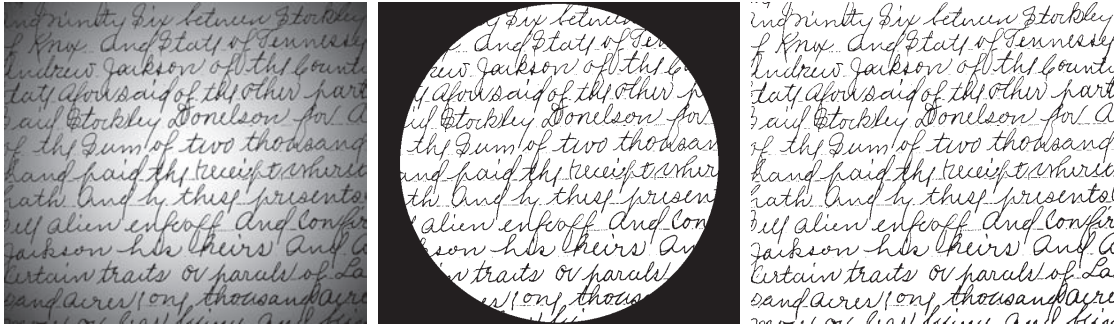 and ninety six between Stockley
of Knox and State of Tennessey
Andrew Jackson of the County
tate aforesaid of the other part
said Stockley Donelson for A
of the Sum of two thousand
hand paid the receipt where
hath And by these presents
sell alien enfeoff and Confir
Jackson his heirs And A
Certain traits or parcels of La
sand acres one thousand acre
six between
and State of Ten
rew Jackson of the C
aforesaid of the other p
aid Stockley Donelson for
of the Sum of two thousan
and paid the receipt wher
ath And by these presents
alien enfeoff and Con
kson his heirs An
in traits or parcels
res one thous
and ninety six between Stockley
of Knox and State of Tennessey
Andrew Jackson of the County
tate aforesaid of the other part
said Stockley Donelson for A
of the Sum of two thousand
hand paid the receipt where
hath And by these presents
sell alien enfeoff and Confir
Jackson his heirs And A
Certain traits or parcels of La
sand acres one thousand acre